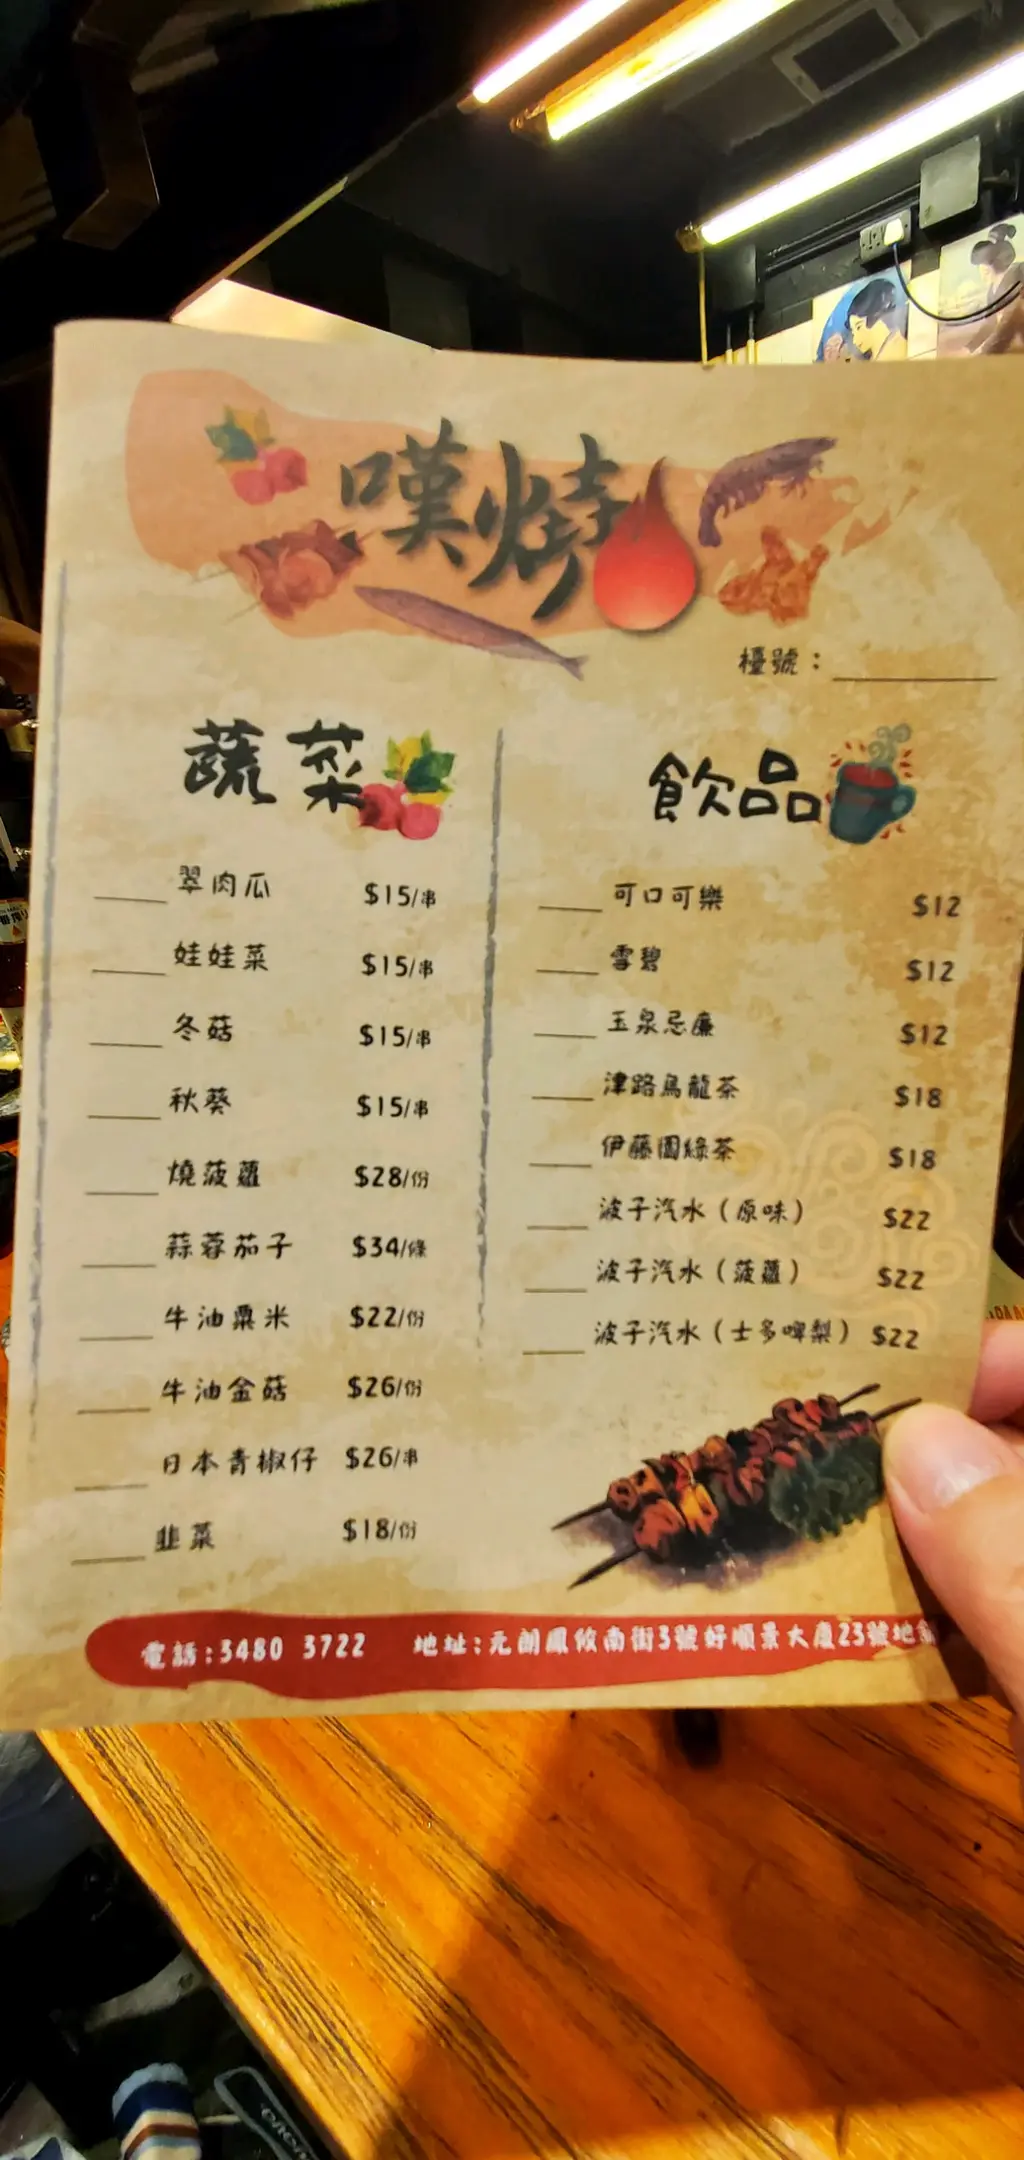 嘆燒
檯號：
蔬菜
翠肉瓜 $15/串
娃娃菜 $15/串
冬菇 $15/串
秋葵 $15/串
燒菠蘿 $28/份
蒜蓉茄子 $34/條
牛油粟米 $22/份
牛油金菇 $26/份
日本青椒仔 $26/串
韭菜 $18/份
飲品
可口可樂 $12
雪碧 $12
玉泉忌廉 $12
津路烏龍茶 $18
伊藤園綠茶 $18
波子汽水（原味） $22
波子汽水（菠蘿） $22
波子汽水（士多啤梨） $22
電話：3480 3722 地址：元朗鳳攸南街3號好順景大廈23號地